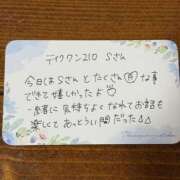 テイクワン210 Sさん
今日はSさんとたくさん㊙な事
できて嬉しかったよ♡
一緒に気持ちよくなれてお話も
楽しくてあっとういう間だった△△